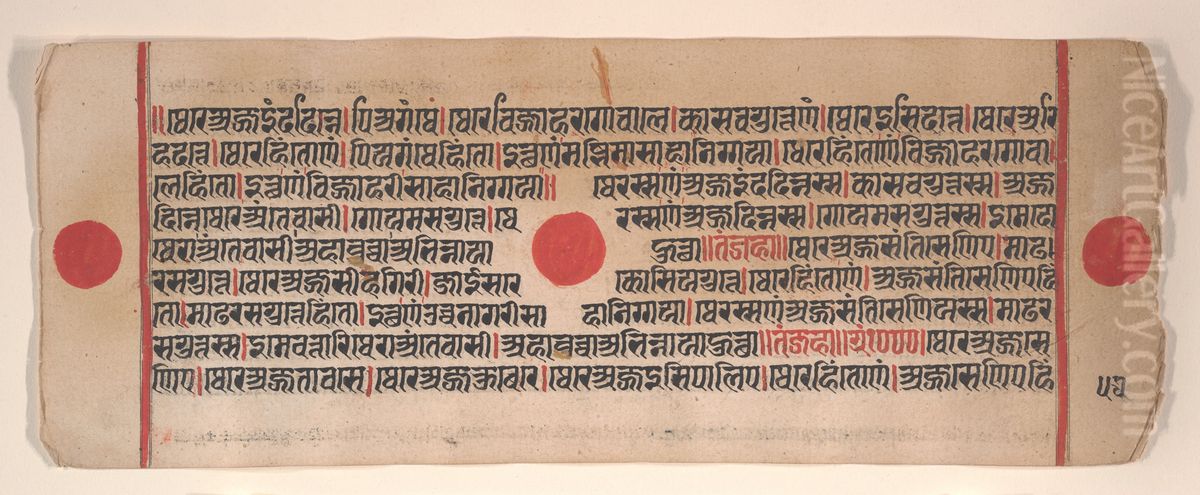 ॥थेरे अज्जइंददिन्ने। पियगंथे। थेरे विज्जाहरगोवाले। कासवगुत्तेणं। थेरे इसिदत्ते। थेरे अरि
हदत्ते। थेरेहिंतो णं। पियगंथेहिंतो। इत्थ णं मज्झिमा साहा निग्गया। थेरेहिंतो णं विज्जाहरगोवा
लेहिंतो। इत्थ णं विज्जाहरी साहा निग्गया॥ थेरस्स णं अज्जइंददिन्नस्स। कासवगुत्तस्स। अज्ज
दिन्ने थेरे अंतेवासी। गोयमसगुत्ते। थे रस्स णं अज्जदिन्नस्स। गोयमसगुत्तस्स। इमे दो
थेरा अंतेवासी अहावच्चा अभिन्नाया हुत्था॥तं जहा॥थेरे अज्जसंतिसेणिए। माढ
रसगुत्ते। थेरे अज्जसीहगिरी। जाईसरे कोसियगुत्ते। थेरेहिंतो णं। अज्जसंतिसेणिएहिं
तो। माढरसगुत्तेहिंतो। इत्थ णं उच्चनागरी साहा निग्गया। थेरस्स णं अज्जसंतिसेणियस्स। माढर
सगुत्तस्स। इमे चत्तारि थेरा अंतेवासी। अहावच्चा अभिन्नाया हुत्था॥तं जहा॥ग्रं१०००। थेरे अज्जसे
णिए। थेरे अज्जतावसे। थेरे अज्जकुबेरे। थेरे अज्जइसिपालिए। थेरेहिंतो णं। अज्जसेणिएहिं
५३
NiceArtGallery.com